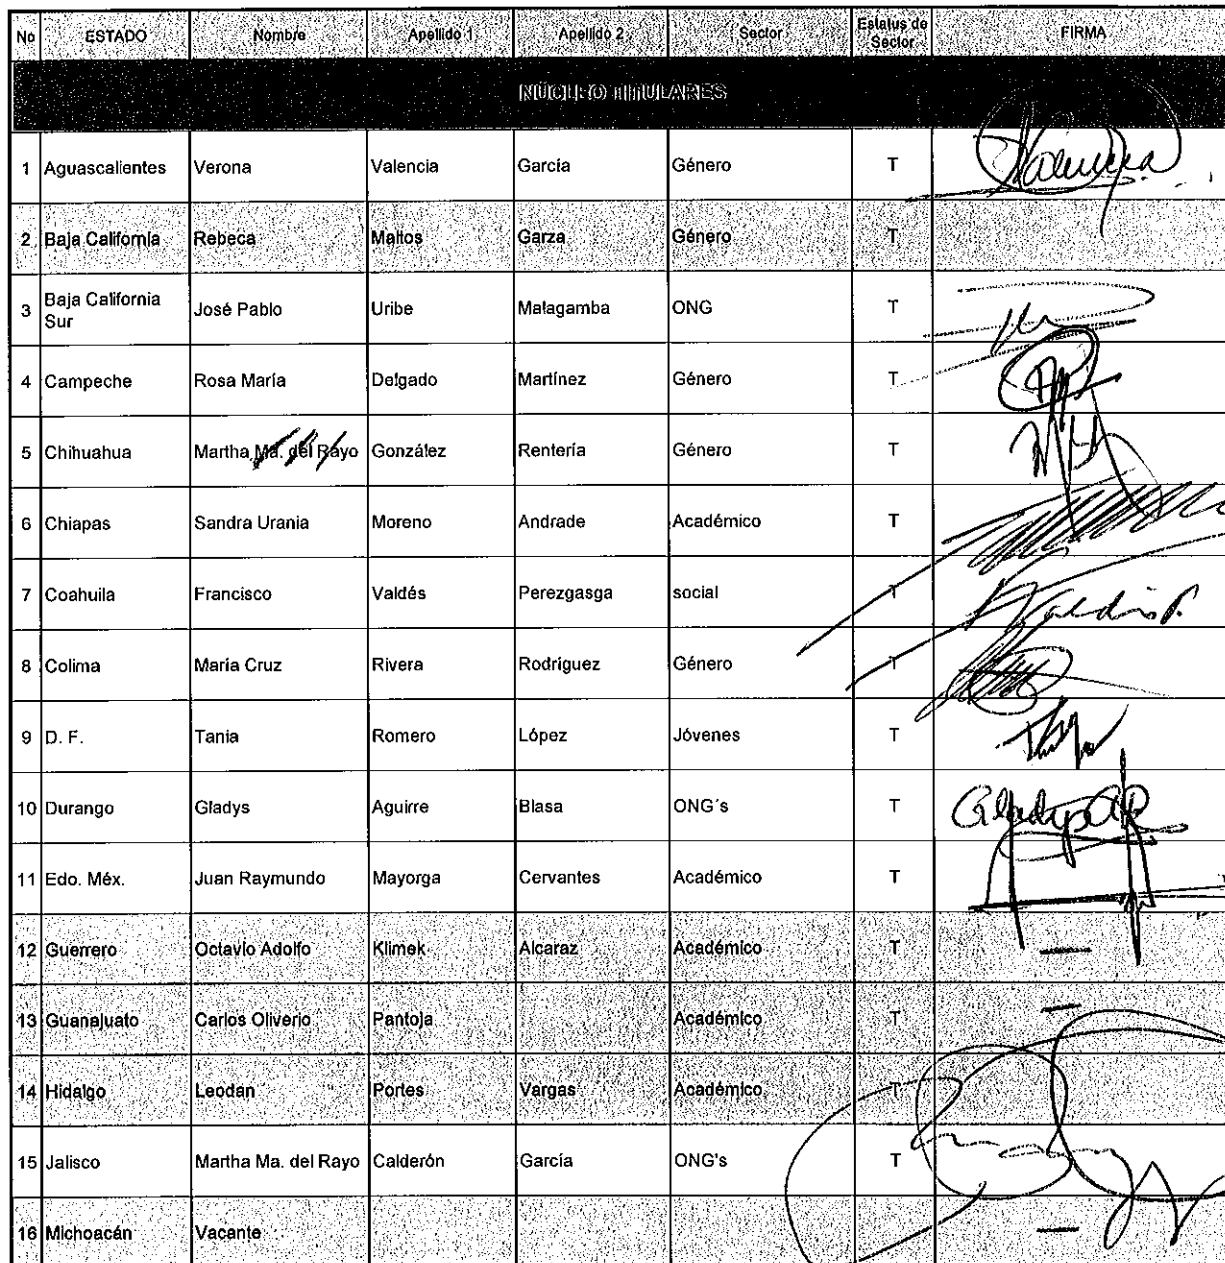 No ESTADO Nombre Apellido 1 Apellido 2 Sector Estatus de Sector FIRMA
NÚCLEO TITULARES
1 Aguascalientes Verona Valencia García Género T
2 Baja California Rebeca Maltos Garza Género T
3 Baja California Sur José Pablo Uribe Malagamba ONG T
4 Campeche Rosa María Delgado Martínez Género T
5 Chihuahua Martha Ma. del Rayo González Rentería Género T
6 Chiapas Sandra Urania Moreno Andrade Académico T
7 Coahuila Francisco Valdés Perezgasga social T
8 Colima María Cruz Rivera Rodríguez Género T
9 D. F. Tania Romero López Jóvenes T
10 Durango Gladys Aguirre Blasa ONG´s T Gladys
11 Edo. Méx. Juan Raymundo Mayorga Cervantes Académico T
12 Guerrero Octavio Adolfo Klimek Alcaraz Académico T —
13 Guanajuato Carlos Oliverio Pantoja Académico T —
14 Hidalgo Leodan Portes Vargas Académico T
15 Jalisco Martha Ma. del Rayo Calderón García ONG's T
16 Michoacán Vacante —